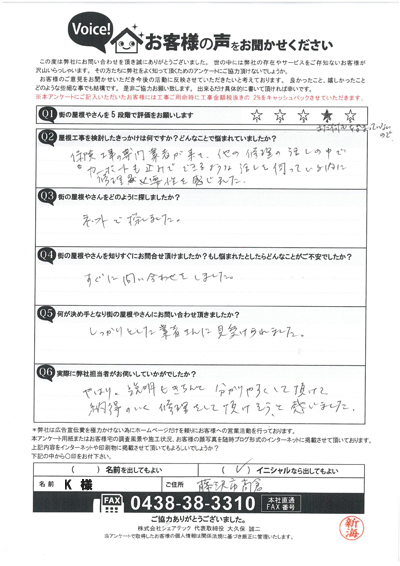 Voice!
お客様の声をお聞かせください
この度は弊社にお問い合わせを頂き誠にありがとうございました。世の中には弊社の存在やサービスをご存知ないお客様が
沢山いらっしゃいます。その方たちに弊社をよく知って頂くためのアンケートにご協力頂けないでしょうか。
お客様のご意見をお聞かせいただき今後の活動に反映させていただきたいと考えております。良かったこと、嬉しかったこと
どのような些細な事でも結構です。是非ご協力お願い致します。出来るだけ具体的に書いて頂ければ幸いです。
※本アンケートにご記入いただいたお客様には工事ご用命時に工事金額税抜きの 2%をキャッシュバックさせていただきます。
Q1 街の屋根やさんを5段階で評価をお願いします ☆ ☆ ☆ ★ ☆
Q2 屋根工事を検討したきっかけは何ですか?どんなことで悩まれていましたか?
保険工事の専門業者が来て、他の修理の話しの中で
カーポートも止めてできるような話しを伺っている内に
修理必要性を感じた。
Q3 街の屋根やさんをどのように探しましたか?
ネットで探しました。
Q4 街の屋根やさんを知りすぐにお問合せ頂けましたか?もし悩まれたとしたらどんなことがご不安でしたか?
すぐに問い合わせをしました。
Q5 何が決め手となり街の屋根やさんにお問い合わせ頂きましたか?
しっかりとした業者さんに見受けられました。
Q6 実際に弊社担当者がお伺いしていかがでしたか?
やはり、説明もきちんと分かりやすくして頂けて
納得のいく修理をして頂けそうと感じました。
※弊社は広告宣伝費を極力かけない為にホームページだけを頼りにお客様への営業活動を行っております。
本アンケート用紙またはお客様宅の調査風景や施工状況、お客様の顔写真を随時ブログ形式のインターネットに掲載させて頂いております。
上記内容をインターネットや印刷物に掲載させて頂いてもよろしいでしょうか?
下記の中から○印をお付け下さい。
( ) 名前を出してもよい (✓) イニシャルなら出してもよい
名前 K 様 ご住所 藤沢市高倉
FAX 0438-38-3310 本社直通 FAX 番号
ご協力ありがとうございました。
株式会社シェアテック 代表取締役 大久保 誠二
当アンケートで取得したお客様の個人情報は関係法規に基づき厳正に管理いたします。
新海